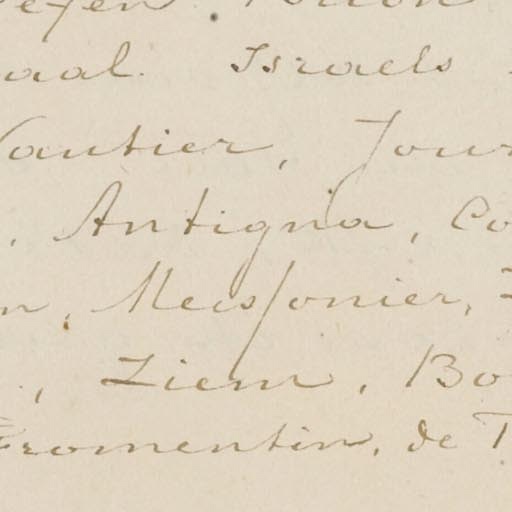 aal. Israels
Vautier, Jour
, Antigna, Co
n, Meissonier,
, Ziem, Bo
Fromentin, de T